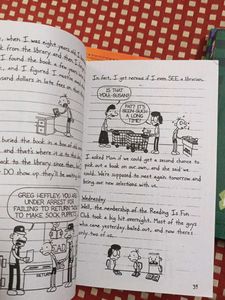 , when I was eight years old I
k from the library and then I
I found the book a few years
, and I figured I must owe
usand dollars in late fees on that
buried the book in a box of old
and that's where it is to this da
ck to the library since then, but
DO show up, they'll be waiting
GREG HEFFLEY, YOU ARE
UNDER ARREST FOR
FAILING TO RETURN "HOW
TO MAKE SOCK PUPPETS"
RETURNS
In fact, I get nervous if I even SEE a librarian.
IS THAT
YOU, SUSAN?
PAT? IT'S
BEEN SUCH
A LONG
TIME!
I asked Mom if we could get a second chance to
pick out a book on our own, and she said we
could. We're supposed to meet again tomorrow and
bring our new selections with us.
Wednesday
Well, the membership of the Reading Is Fun
Club took a big hit overnight. Most of the guys
who came yesterday bailed out, and now there's
only two of us.